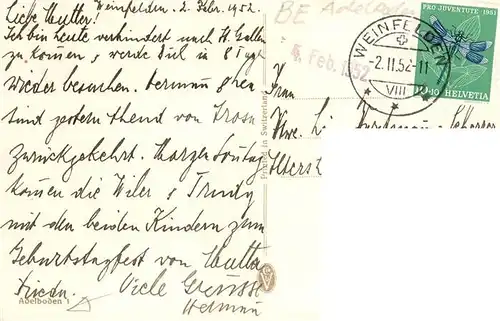 Weinfelden, 2. Febr. 1952.
Liebe Mutter!
Ich bin heute verhindert nach St. Gallen
zu kommen, werde Dich in 8 Tagen
wieder besuchen. Hermann &
sind gestern Abend von Arosa
zurückgekehrt. Morgen Sonntag
kommen die Wiler & Trudy
mit den beiden Kindern zum
Geburtstagfest von Mutter
Frieda. Viele Grüsse
Hermann
Adelboden
Printed in Switzerland
BE Adelboden
5. Feb. 1952
WEINFELDEN
-2.II.52-11
VIII
PRO JUVENTUTE 1951
10+10 HELVETIA
Frau
Wwe.
Alters